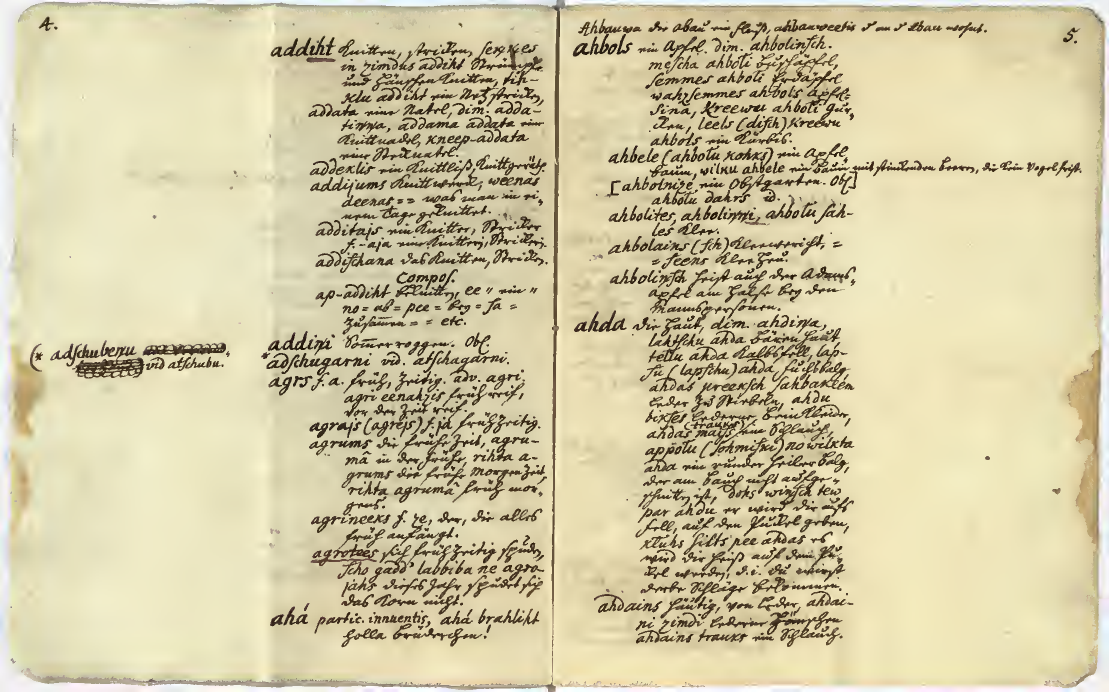 4.
addiht knitten, stricken, sexxes
in zimdus addiht Strümpfe
und Händschen knitten, tih-
klu addiht ein Netz stricken,
addata eine Natel, dim. adda-
tinna, addama addata eine
Knittnadel, kneep-addata
eine Stecknatel.
addeklis ein Knittliß, Knittgeräth.
addijums Knittwerck, weenas
deenas == was man in ei-
nem Tage geknittet.
additajs ein Knitter, Stricker
f. -aja eine Knitterin, Strickerin.
addischana das Knitten, Stricken.
Compos.
ap-addiht beknitten, ee = ein =
no = ab = pee = bey = sa =
zusammen = = etc.
addini Sommerroggen. Obs.
(* adschubenu
vid atschubu.
*adschugarni vid. atschagarni.
agrs f. a. früh, zeitig. adv. agri.
agri eenahzis früh reif,
vor der Zeit reif.
agrajs (agrejs) f. ja frühzeitig.
agrums die frühe Zeit, agru-
mâ in der Frühe, rihta a-
grums die frühe Morgen Zeit,
rihta agrumâ früh mor-
gens.
agrineeks f. ze, der, die alles
früh anfängt.
agrotees sich frühzeitig spuden,
scho gadd' labbiba ne agro-
jahs dieses Jahr spudet sich
das Korn nicht.
ahá partic. innuentis, ahá brahliht
holla brüderchen!
5.
Ahbauwa die Abau ein Fluß, ahbauweetis der an der Abau wohnt.
ahbols ein Apfel. dim. ahbolinsch.
mescha ahboli buschäpfel,
semmes ahboli Erdäpfel
wahzsemmes ahbols apfel-
sina, kreewu ahboli gur-
cken, leels (disch) kreewu
ahbols ein Kürbis.
ahbele (ahbolu kohks) ein Apfel-
baum, wilku ahbele ein baum mit stinkenden beeren, die kein Vogel frist.
[ahbolnize ein Obstgarten. Obs.]
ahbolu dahrs id.
ahbolites, ahbolinni, ahbolu sah-
les Klee.
ahbolains (sch) Kleereich, =
= seens Klee Heu.
ahbolinsch heist auch der Adams-
apfel am Halse bey den
Mannspersonen.
ahda die Haut, dim. ahdina,
lahtschu ahda bären haut,
tellu ahda Kalbsfell, lap-
su (lapschu) ahda fuchsbalg.
ahdas kreeksch sahbakeem
leder zu Stiebeln, ahdu
bikses lederne beinkleider,
trauks
ahdas maiss ein Schlauch,
appolu (sohmisku) nowilkta
ahda ein runder heiler balg,
der am bauch nicht aufge-
schnitten ist, dohs winsch tew
par ahdu er wird dir aufs
fell, auf den Puckel geben,
kluhs silts pee ahdas es
wird dir heiß auf dem Pu-
kel werden, d.i. du wirst
derbe Schläge bekommen.
ahdains häutig, von Leder, ahdai-
ni zimdi lederne Händschen
ahdains trauks ein Schlauch.